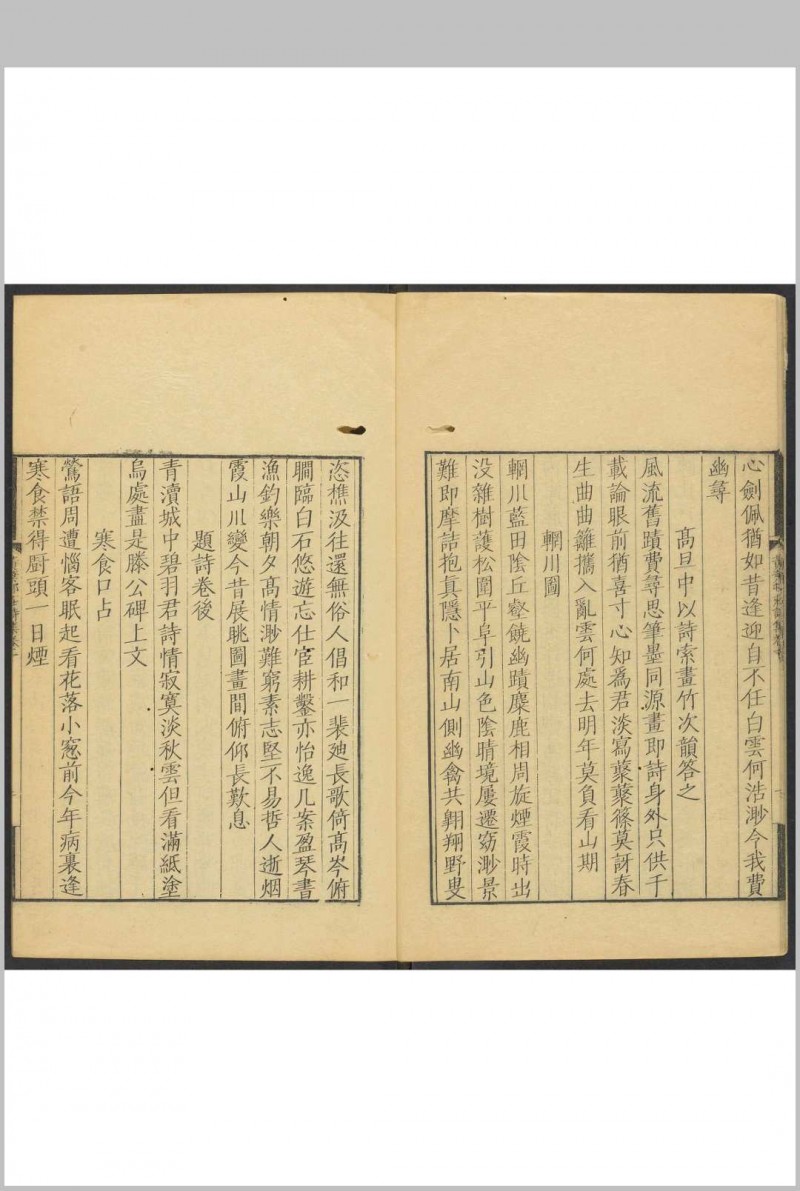 心劍佩猶如昔逢迎自不任白雲何浩渺今我費
幽尋
高旦中以詩索畫竹次韻答之
風流舊蹟費尋思筆墨同源畫即詩身外只供千
載論眼前猶喜寸心知爲君淡寫䕺䕺篠莫訝春
生曲曲籬攜入亂雲何處去明年莫負看山期
輞川圖
輞川藍田陰丘壑饒幽蹟麋鹿相周旋煙霞時出
没雜樹護松圍平阜引山色陰晴境屢遷窈渺景
難即摩詰抱眞隱卜居南山側幽禽共翱翔野叟
恣樵汲往還無俗人倡和一裴廸長歌倚高岑俯
瞷臨白石悠遊忘仕宦耕鑿亦怡逸几案盈琴書
漁釣樂朝夕高情渺難窮素志堅不易哲人逝烟
霞山川變今昔展眺圖畫間俯仰長歎息
題詩卷後
青瀆城中碧羽君詩情寂寞淡秋雲但看滿紙塗
烏處盡是滕公碑上文
寒食口占
鶯語周遭惱客眠起看花落小窻前今年病裏逢
寒食禁得厨頭一日煙